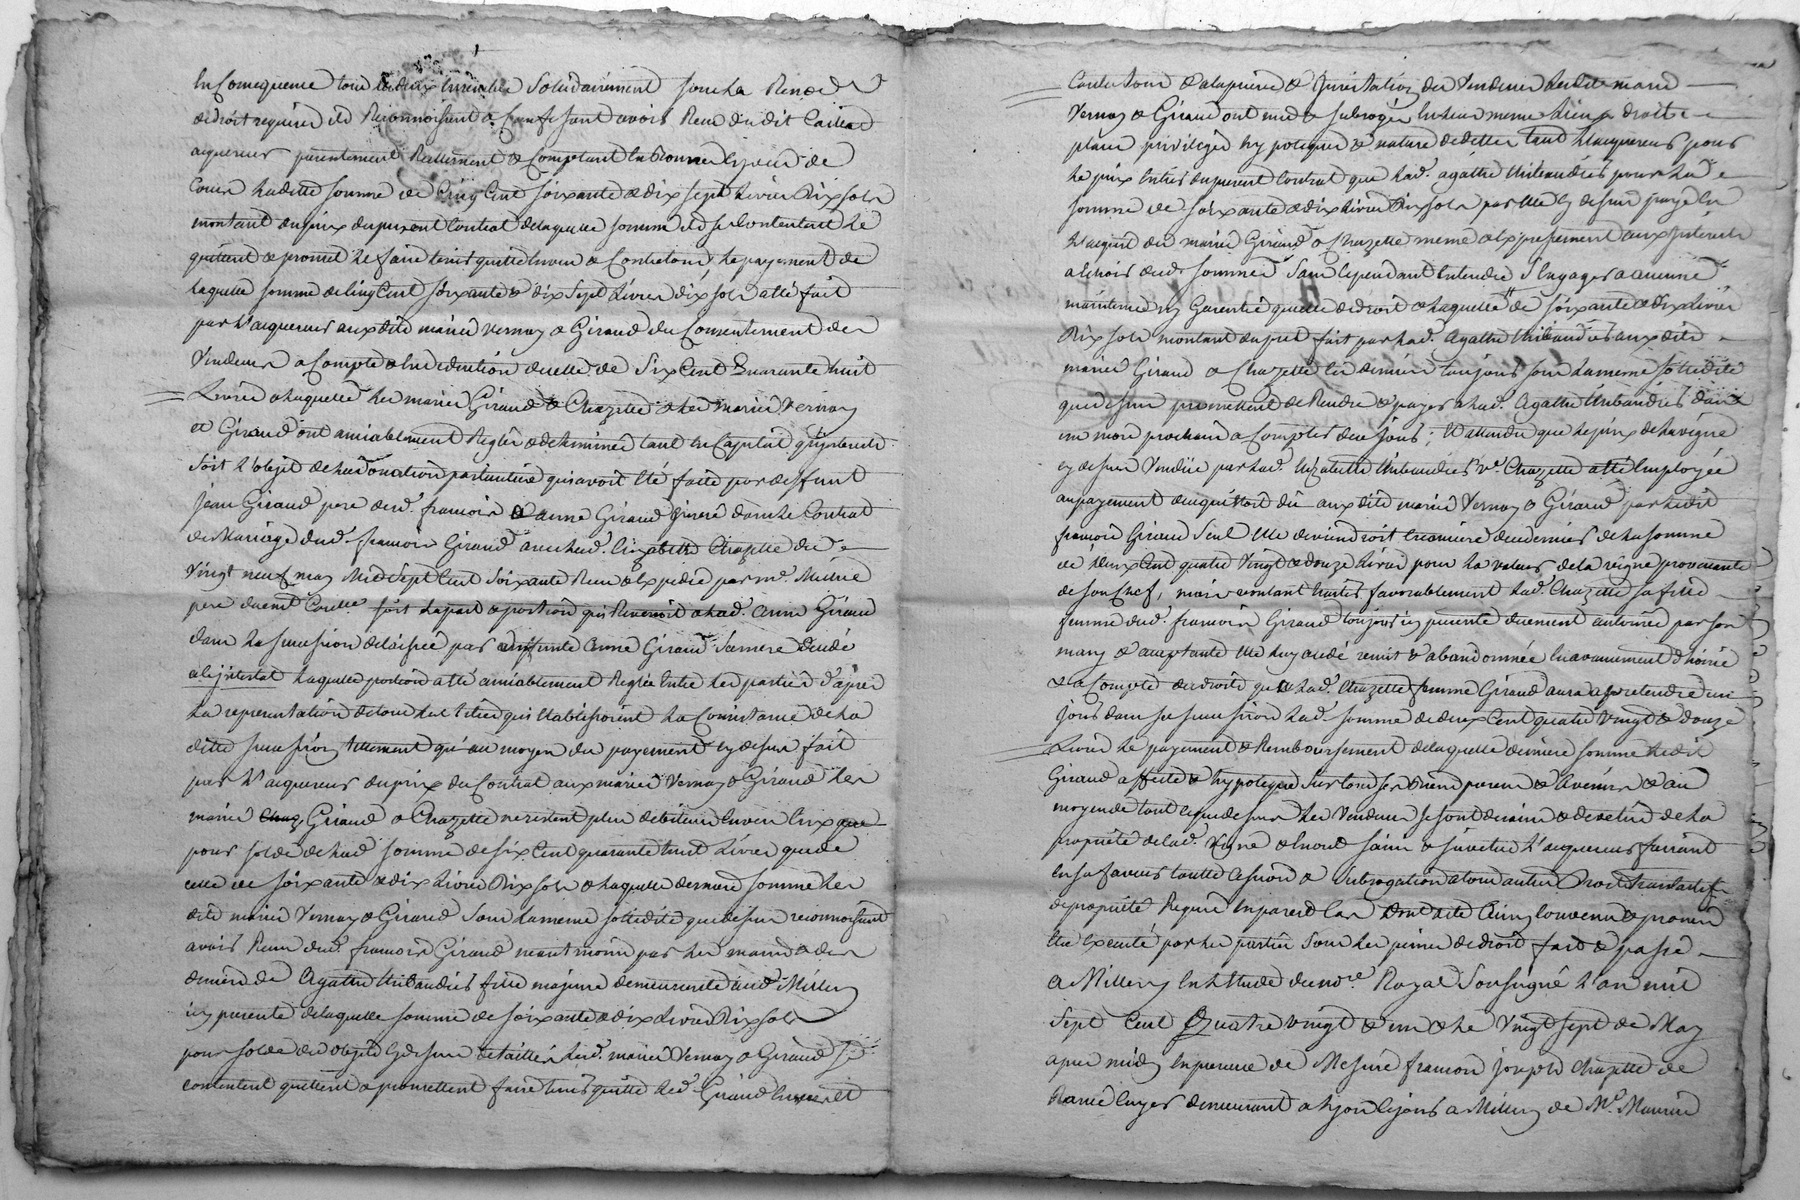 En Consequence tous les deux Ensemble Solidairement sous La Renon
de droit requises ils Reconnoissent & Confessent avoir Recu dudit Caillat
acquereur presentement Reellement & Comptant En bonnes Especes de
Cours Laditte somme de Cinq Cent soixante & dix sept Livres Dix sols
montant du prix du present Contrat de laquelle somme ils se Contentent Le
quittent & promet Le faire tenir quitte Envers & Contre tous, Le payement de
Laquelle somme de Cinq Cent soixante & dix sept Livres dix sols a été fait
par L'acquereur auxdits mariés Vernay & Giraud du Consentement des
Vendeurs a Compte & En deduction de celle de Six Cent Quarante huit
Livres a Laquelle Les mariés Giraud & Chazette & Les mariés Vernay
et Giraud ont amiablement Reglés & determinés tant En Capital qu'interets
Soit L'objet de La donation particuliere qui avoit Eté faitte par deffunt
jean Giraud pere desd. francois & anne Giraud inseré dans Le Contrat
de Mariage dud. francois Giraud avec Lad. Elizabette Chazette du
Vingt neuf may Mil Sept Cent Soixante Recu & Expedié par me. Mellié
pere duement Controllé soit La part & portion qui Revenoit a Lad. anne Giraud
dans La succession delaissée par deffunte anne Giraud sa mere decedé
ab intestat Laquelle portion a été amiablement Reglée Entre Les parties d'après
La representation de tous Les titres qui Etablissoient La Consistance de La
ditte succession tellement qu'au moyen du payement cy dessus fait
par L'acquereur du prix du Contrat aux mariés Vernay & Giraud Les
mariés Chaz. Giraud & Chazette ne restent plus debiteurs Envers Eux que
pour solde de Lad. somme de six Cent quarante huit Livres que de
celle de soixante & dix Livres Dix sols & Laquelle derniere somme Les
dits mariés Vernay & Giraud sous La meme solidité que dessus reconnoissent
avoir Recu dud. francois Giraud neantmoins par Les mains & des
deniers de Agathe Thibaudier fille majeure demeurante aud. Millery
icy presente de laquelle somme de soixante & dix Livres Dix sols
pour solde des objets Cy dessus detaillés Lesd. mariés Vernay & Giraud se
contentent quittent & promettent faire tenir quitte Led. Giraud Envers et
Contre tous & a la priere & Invitation des Vendeurs Lesdits mariés
Vernay & Giraud ont mis & subrogés En Leur meme Lieu & droits
place privileges hypoteques & nature de dettes tant L'acquereur pour
Le prix Entier du present Contrat que Lad. agathe Thibaudier pour La
somme de soixante & dix Livres Dix sols par Elle Cy dessus payée En
L'acquit des mariés Giraud & Chazette meme & Expressement aux Interets
a Echoir desd. sommes Sans Cependant Entendre S'Engager a aucune
maintenue ny Garentie quelle de droit & Laquelle de soixante & dix Livres
Dix sols montant du pret fait par Lad. Agathe Thibaudier auxdits
mariés Giraud & Chazette Ces derniers toujours sous La meme solidité
que dessus promettent de Rendre & payer a Lad. Agathe Thibaudier dans
un mois prochain a Compter de ce jour; Et attendu que Le prix de La vigne
cy dessus Vendüe par Lad. Elizabette Thibaudier Ve. Chazette a été Employée
au payement de ce qui Etoit dû auxdits mariés Vernay & Giraud par Ledit
francois Giraud Seul Elle deviendroit creanciere de ce dernier de La somme
de deux Cent quatre Vingt & douze Livres pour La valeur de la vigne provenante
de son Chef, mais voulant traiter favorablement Lad. Chazette sa fille
femme dud. francois Giraud toujours icy presente duement autorisée par son
mary & acceptante Elle luy a cedé remis & abandonnée En avancement d'hoirie
& a Compte des droits que Lad. Chazette femme Giraud aura a pretendre un
jour dans sa succession Lad. somme de deux Cent quatre Vingt & douze
Livres Le payement & Remboursement de laquelle derniere somme Ledit
Giraud affecte & hypoteque sur tous ses Biens presens & avenirs & au
moyen de tout ce que dessus Les Vendeurs se sont demis & devetus de La
proprieté de lad. Vigne & En ont saisi & investu L'acquereur faisant
En sa faveur toutte Cession & subrogation a tous autres droits translatifs
de proprieté Requis En pareil Cas Dont acte Ainsy Convenu & promis
Etre Executé par Les parties sous Les peines de droit fait & passé
a Millery En L'Etude du nore. Royal Soussigné L'an mil
Sept Cent Quatre Vingt & un & Le Vingt Sept de May
apres midy En presence de Messire francois joseph Chazette de
Ecuyer demeurant a Lyon a Millery de Mr. Maurin